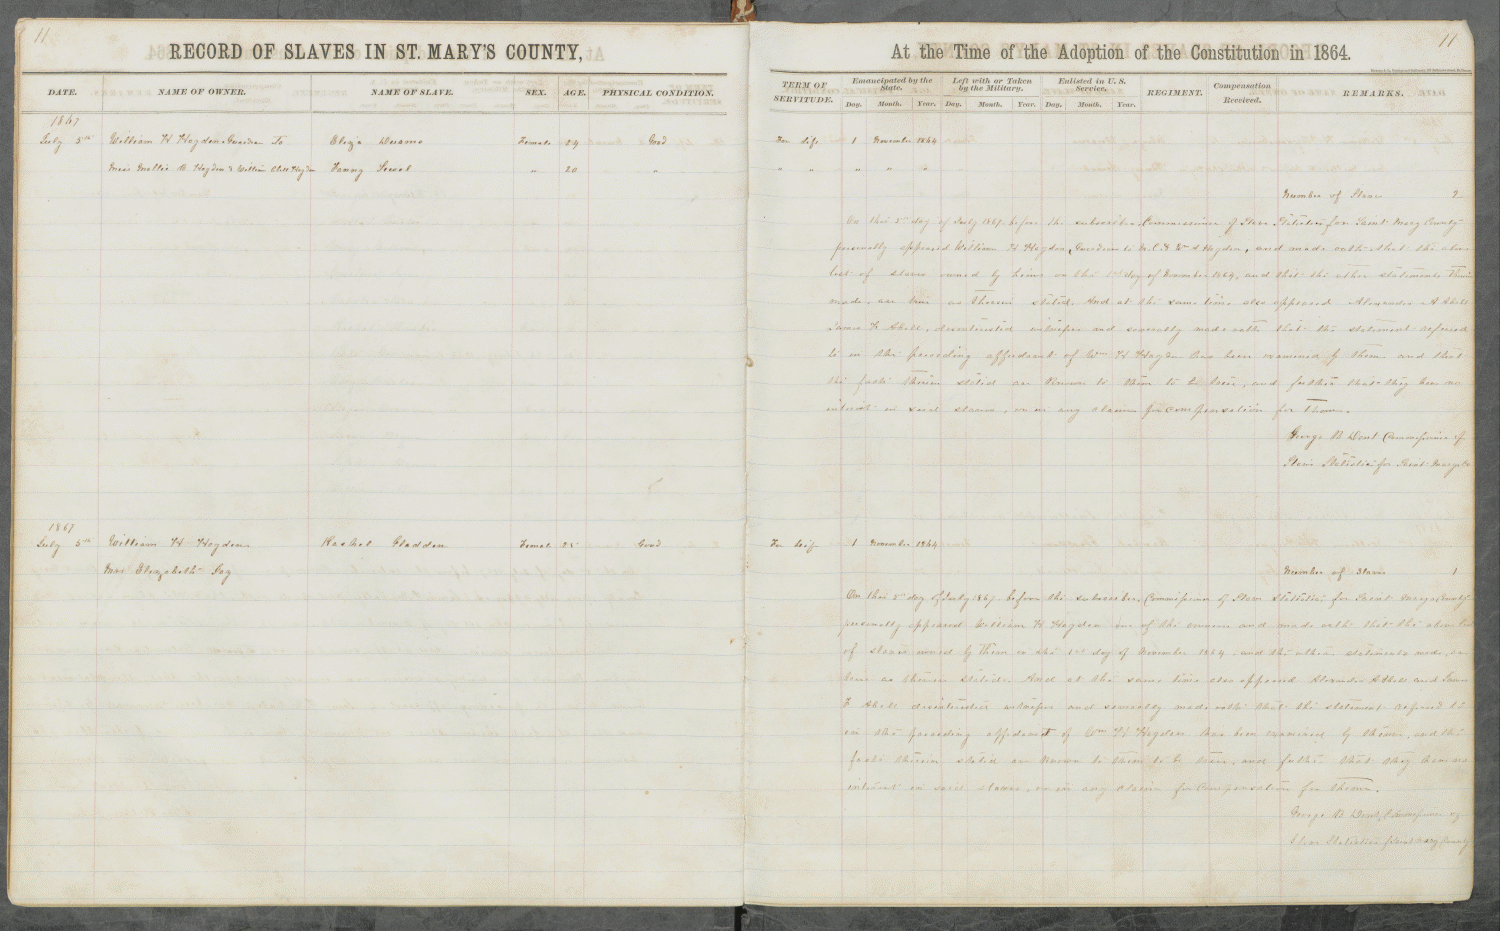 11
RECORD OF SLAVES IN ST. MARY'S COUNTY,
DATE. NAME OF OWNER. NAME OF SLAVE. SEX. AGE. PHYSICAL CONDITION.
1867
July 5th William H Hayden Guardian To Eliza Female 24 Good
Miss Mollie C Hayden & William Hayden Fanny " 20 "
1867
July 5th William H Hayden Rachel Gladden Female 25 Good
Mrs Elizabeth
11
At the Time of the Adoption of the Constitution in 1864.
TERM OF SERVITUDE. Emancipated by the State. Left with or Taken by the Military. Enlisted in U. S. Service. REGIMENT. Compensation Received. REMARKS.
Day. Month. Year. Day. Month. Year. Day. Month. Year.
For Life 1 November 1864
" " " " "
Number of Slaves 2
On this 5th day of July 1867, before the subscriber, Commissioner of Slave Statistics for Saint Mary County
personally appeared William H Hayden, Guardian to M. C. & Wm Hayden, and made oath that the above
list of slaves owned by him on the 1st day of November 1864, and that the other statements therein
made, are true as therein stated. And at the same time also appeared Alexander A Abell
James F Abell, disinterested witnesses and severally made oath that the statement referred
to in the preceding affidavit of Wm H Hayden has been examined by them and that
the facts therein stated are known to them to be true, and further that they have no
interest in said slaves, or in any claim for compensation for them.
George B Dent Commissioner of
Slave Statistics for Saint Marys Co
For Life 1 November 1864
Number of Slaves 1
On this 5th day of July 1867, before the subscriber, Commissioner of Slave Statistics for Saint Marys County
personally appeared William H Hayden one of the owners and made oath that the above list
of slaves owned by them on the 1st day of November 1864, and the other statements made, are
true as therein stated. And at the same time also appeared Alexander A Abell and James
F Abell disinterested witnesses and severally made oath that the statement referred to
in the preceding affidavit of Wm H Hayden has been examined by them, and the
facts therein stated are known to them to be true, and further that they have no
interest in said slaves, or in any claim for compensation for them.
George B Dent, Commissioner of
Slave Statistics Saint Mary County